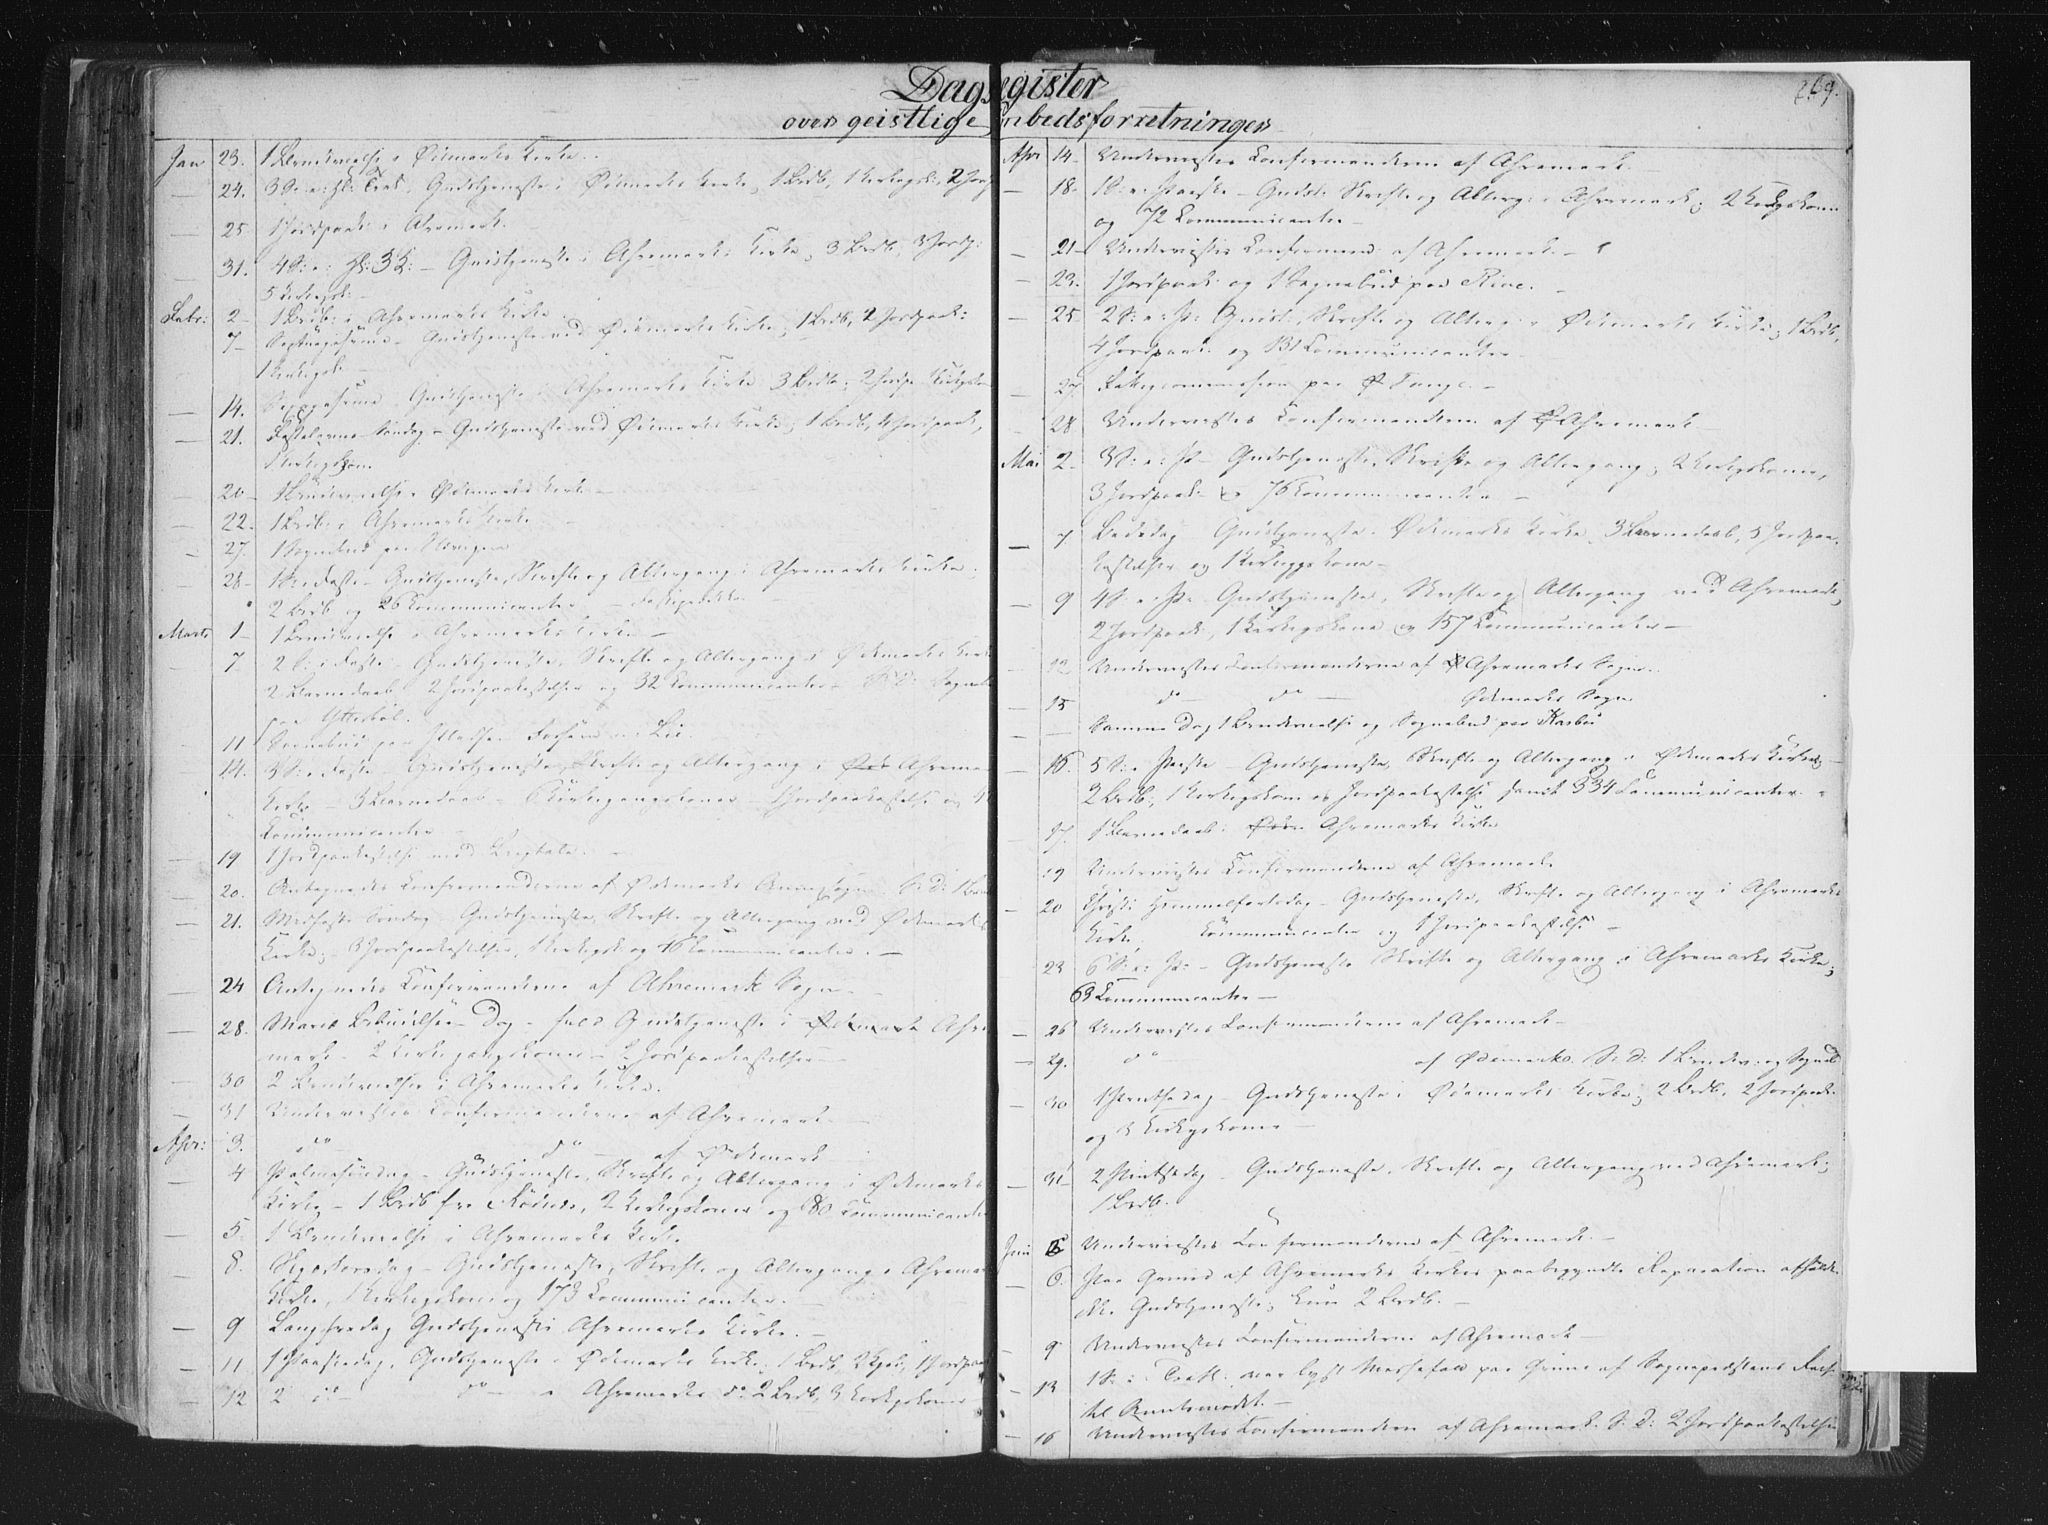 Dagregister
over geistlige Embedsforretninger
269.
Jan 23. 1 Brudevielse i Ødemarks Kirke.
— 24. 3 S. e: Hl: Trek. Gudstjeneste i Ødemarks Kirke, 1 Brdb, 1 Kirkegsk:, 2 Jordp
— 25. 1 Jordpaak: i Ahremark.
— 31. 4 S: e: Hl: 3 K: — Gudstjeneste i Ahremarks Kirke, 3 Brdb, 3 Jordp:
5 Kirkegsk: —
Febr: 2 — 1 Brdb: i Ahremarks Kirke.
7 — Septuagesima — Gudstjeneste ved Ødemarks Kirke; 1 Brdb, 2 Jordpaak:
1 Kirkegsk —
— 14. Gudstjeneste i Ahremarks Kirke 3 Brdb; 2 Jordp
— 21. Fastelavns Søndag — Gudstjeneste ved Ødemarks Kirke; 1 Brdb, 4 Jordpaak,
1 Kirkegskone.
— 20 — 1 Brudevielse i Ødemarks Kirke —
— 22. 1 Brdb: i Ahremarks Kirke —
— 27. 1 Sognebud paa
— 28 — 1 S. i Faste — Gudstjeneste, Skrifte og Altergang i Ahremarks Kirke;
2 Brdb og 26 Kommunicanter —
Marts 1 — 1 Brudevielse i Ahremarks Kirke —
— 7 — 2 S. i Faste — Gudstjeneste, Skrifte og Altergang i Ødemarks Kirke
2 Barnedaab 2 Jordpaakastelser og 32 Communicanter — S. D: Sognebud
paa Ytterbøl.
— 11 Sognebud paa
— 14. 3 S: i Faste — Gudstjeneste, Skrifte og Altergang i Øde Ahrema-
Kirke — 3 Barnedaab — 6 Kirkegangskoner — 1 Jordpaakastelse og 4
Communicanter —
— 19 1 Jordpaakastelse med Ligtale. —
— 20. Antegnedes Confirmanderne af Ødemarks Annexsogn. S. D: 1
— 21. Midfaste Søndag — Gudstjeneste, Skrifte og Altergang ved Ødemarks
Kirke; 3 Jordpaakastelser, 1 Kirkegsk: og 16 Communicanter. —
— 24 Antegnedes Confirmanderne af Ahremark Sogn —
— 28. Mariæ Bebudelses Dag — Gudstjeneste i Ødemark Ahre
mark — 2 Kirkegangskoner — 2 Jordpaakastelser —
— 30 2 Brudevielser i Ahremarks Kirke.
— 31 Undervistes Confirmanderne af Ahremark —
Apr: 3. d° d° af Ødemark —
— 4 Palmesøndag — Gudstjeneste, Skrifte og Altergang i Ødemarks
Kirke — 1 Brdb fra Rødnæs, 2 Kirkegskoner og 80 Communicanter
— 5. 1 Brudevielse i Ahremarks Kirke.
— 8. Skjærtorsdag — Gudstjeneste, Skrifte og Altergang i Ahremar
Kirke, 1 Kirkegskone og 178 Communicanter. —
— 9 Langfredag Gudstjeneste i Ahremarks Kirke. —
— 11. 1 Paaskedag, Gudstjeneste i Ødemarks Kirke; 1 Brdb, 1 Jordpaak
— 12 2 d° — d° — i Ahremarks d° 2 Brdb, 3 Kirkegskoner
Apr 14. Undervistes Confirmanderne af Ahremark.
— 18. 1 S. e: Paaske — Gudst: Skrifte og Alterg: i Ahremark; 2 Kirkegskoner
og 72 Communicanter —
— 21 — Undervistes Confirmand: af Ahremark. —
— 23. 1 Jordpaak: og 1 Sognebud paa Rive. —
— 25 2 S: e: P: Gudst:, Skrifte og Alterg: i Ødemarks Kirke; 1 Brdb,
4 Jordpaak: og 131 Communicanter —
— 27. Fattigcommission paa Ø Tange. —
— 28 Undervistes Confirmanderne af Ø Ahremark —
Mai 2. 3 S: e: P — Gudstjeneste, Skrifte og Altergang; 2 Kirkegskoner,
3 Jordpaak: og 76 Communicanter —
— 7 Bededag — Gudstjeneste i Ødemarks Kirke, 3 Barnedaab, 5 Jordpaa-
kastelser og 1 Kirkegskone —
— 9 4 S. e: P — Gudstjeneste, Skrifte og Altergang ved Ahremark,
2 Jordpaak:, 1 Kirkegskone og 157 Communicanter —
— 12 Undervistes Confirmanderne af Ø Ahremarks Sogn.
— 15 d° — d° — Ødemarks Sogn
— Samme Dag 1 Brudevielse og Sognebud paa Kasbø
— 16. 5 S: e Paaske — Gudstjeneste, Skrifte og Altergang i Ødemarks Kirke —
2 Brdb:, 1 Kirkegskone, Jordpaakastelse samt 334 Communicanter. —
— 17. 1 Barnedaab: Øde Ahremarks Kirke
— 19 Undervistes Confirmanderne af Ahremark
— 20 Christi Himmelfartsdag — Gudstjeneste, Skrifte og Altergang i Ahremarks
Kirke, Communicanter og 1 Jordpaakastelse —
— 23 6 S: e: P: — Gudstjeneste Skrifte og Altergang i Ahremarks Kirke;
63 Communicanter —
— 26 Undervistes Confirmanderne af Ahremark —
— 29. d° — af Ødemark. S. D: 1 Brudev: og Sogneb
— 30 1 Pintsedag — Gudstjeneste i Ødemarks Kirke; 2 Brdb, 2 Jordpaak:
og 3 Kirkegskoner —
— 31 2 Pintsedag — Gudstjeneste, Skrifte og Altergang ved Ahremark;
1 Brdb.
Juni Undervistes Confirmanderne af Ahremark. —
— 6. Paa Grund af Ahremarks Kirkes paabegyndte Reparation afholdt
ikke Gudstjeneste; kun 2 Brdb. —
— 9 Undervistes Confirmanderne af Ahremark —
— 13 1 S: e: Trefl: var lyst Messefald paa Grund af Sognepræstens Reise
til Amtsmødet. —
— 16 Undervistes Confirmanderne af Ahremark. S. D: 2 Jordpaakastelser